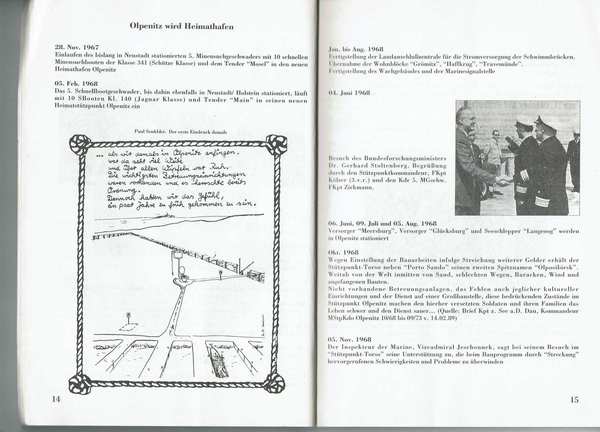 Olpenitz wird Heimathafen
28. Nov. 1967
Einlaufen des bislang in Neustadt stationierten 5. Minensuchgeschwaders mit 10 schnellen
Minensuchbooten der Klasse 341 (Schütze Klasse) und dem Tender "Mosel" in den neuen
Heimathafen Olpenitz
05. Feb. 1968
Das 5. Schnellbootgeschwader, bis dahin ebenfalls in Neustadt/ Holstein stationiert, läuft
mit 10 SBooten Kl. 140 (Jaguar Klasse) und Tender "Main" in seinen neuen
Heimatstützpunkt Olpenitz ein
Der erste Eindruck damals
... als wir damals in Olpenitz anfingen,
war da sehr viel Luft
und Ost allen Winden war Ruh.
Die wichtigsten Betreuungseinrichtungen
waren vorhanden und es herrschte bereits
Ordnung.
Dennoch hatten wir das Gefühl,
ein paar Jahre zu früh gekommen zu sein.
14
Jan. bis Aug. 1968
Fertigstellung der Landanschlußzentrale für die Stromversorgung der Schwimmbrücken.
Übernahme der Wohnblöcke "Grömitz", "Haffkrug", "Travemünde".
Fertigstellung des Wachgebäudes und der Marinesignalstelle
04. Juni 1968
Besuch des Bundesforschungsministers
Dr. Gerhard Stoltenberg. Begrüßung
durch den Stützpunktkommandeur, FKpt
Kölzer (3.v.r.) und den Kdr 5. MGschw.
FKpt Zickmann.
06. Juni, 09. Juli und 05. Aug. 1968
Versorger "Meersburg", Versorger "Glücksburg" und Seeschlepper "Langeoog" werden
in Olpenitz stationiert
Okt. 1968
Wegen Einstellung der Bauarbeiten infolge Streichung weiterer Gelder erhält der
Stützpunkt-Torso neben "Porto Sando" seinen zweiten Spitznamen "Olpositzirsk".
Weitab von der Welt inmitten von Sand, schlechten Wegen, Baracken, Wind und
angefangenen Bauten.
Nicht vorhandene Betreuungsanlagen, das Fehlen auch jeglicher kultureller
Einrichtungen und der Dienst auf einer Großbaustelle, diese bedrückenden Zustände im
Stützpunkt Olpenitz machen den hierher versetzten Soldaten und ihren Familien das
Leben schwer und den Dienst sauer... (Quelle: Brief Kpt z. See a.D. Dau, Kommandeur
MStpKdo Olpenitz 10/68 bis 09/73 v. 14.02.89)
05. Nov. 1968
Der Inspekteur der Marine, Vizeadmiral Jeschonnek, sagt bei seinem Besuch im
"Stützpunkt Torso" seine Unterstützung zu, die beim Bauprogramm durch "Streckung"
hervorgerufenen Schwierigkeiten und Probleme zu überwinden
15